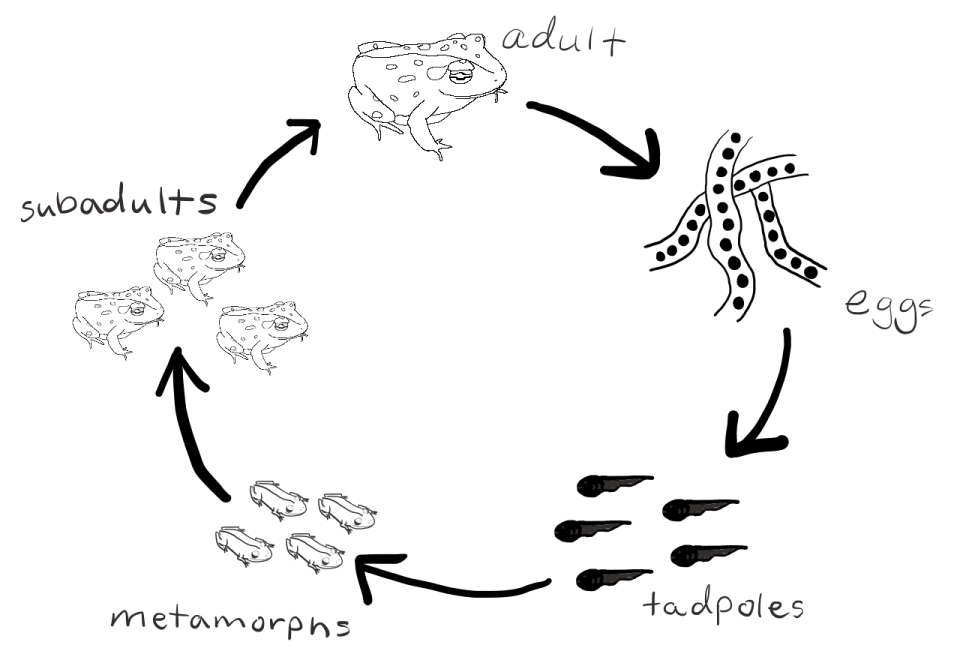 adult
eggs
tadpoles
metamorphs
subadults